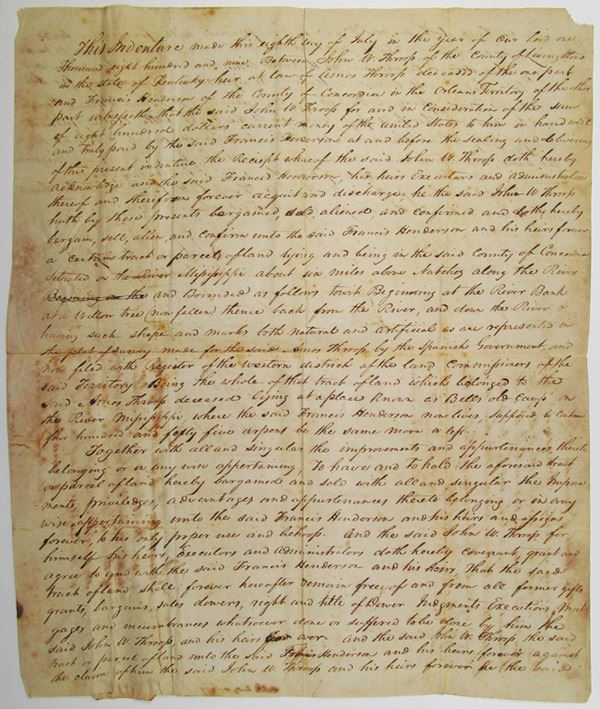 This Indenture made this eighth day of July in the year of Our Lord one
Thousand eight hundred and nine Between John W. Throop of the County of Livingston
in the State of Kentucky heir at law of Amos Throop deceased of the one part
and Francis Henderson of the County of Concordia in the Orleans Territory of the other
part witnesseth that the said John W. Throop for and in Consideration of the sum
of eight hundred dollars current money of the United States to him in hand well
and truly paid by the said Francis Henderson at and before the sealing and delivering
of this present indenture the Receipt whereof the said John W Throop doth hereby
acknowledge and the said Francis Henderson his heirs Executors and administrators
thereof and therefrom forever acquit and discharge he the said John W Throop
hath by these presents bargained, sold, aliened, and confirmed and doth hereby
bargain, sell, alien, and confirm unto the said Francis Henderson and his heirs forever
a certain tract or parcel of land lying and being in the said County of Concordia
situated on the River Mississippi about six miles above Natchez along the River
and Bounded as follows towit Beginning at the River Bank
at a Willow tree (now fallen) thence back from the River, and down the River
having such shape and marks both natural and Artificial as are represented in
the plat of survey made for the said Amos Throop by the Spanish Government, and
now filed with Register of the western district of the land Commissioners of the
said Territory, Being the whole of that tract of land which belonged to the
said Amos Throop deceased Lying at a place known as Bells old Camp on
the River Mississippi where the said Francis Henderson now lives, supposed to contain
four hundred and forty five arpent be the same more or less.
Together with all and singular the improvements and appurtenances thereto
belonging or in any wise appertaining, To have and to hold the aforesaid tract
or parcel of land hereby bargained and sold with all and singular the Improve
ments, priviledges, advantages and appurtenances thereto belonging or in any
wise appertaining unto the said Francis Henderson and his heirs and assigns
forever, to his only proper use and behoof. And the said John W. Throop for
himself his heirs, Executors and administrators doth hereby covenant, grant and
agree to and with the said Francis Henderson and his heirs, That the said
tract of land shall forever hereafter remain free of and from all former gifts
grants, bargains, sales dowers, right and title of Dower Judgments Executions, Mort
gages and incumbrances whatsoever done or suffered to be done by him the
said John W. Throop, and his heirs ever. And the said John W. Throop the said
tract or parcel of land unto the said Francis Henderson and his heirs forever against
the claim of him the said John W. Throop and his heirs forever he the said